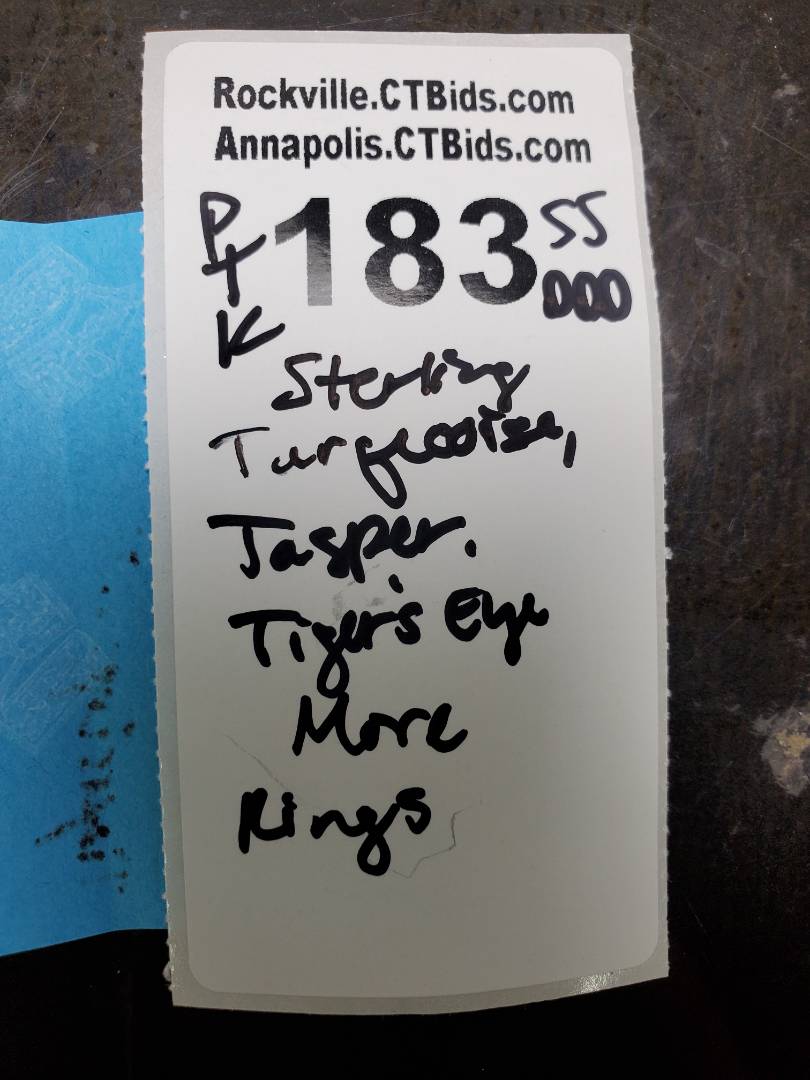 Rockville.CTBids.com
Annapolis.CTBids.com
PTK 183 SS
000
Sterling
Turquoise,
Jasper.
Tiger's Eye
More
Rings